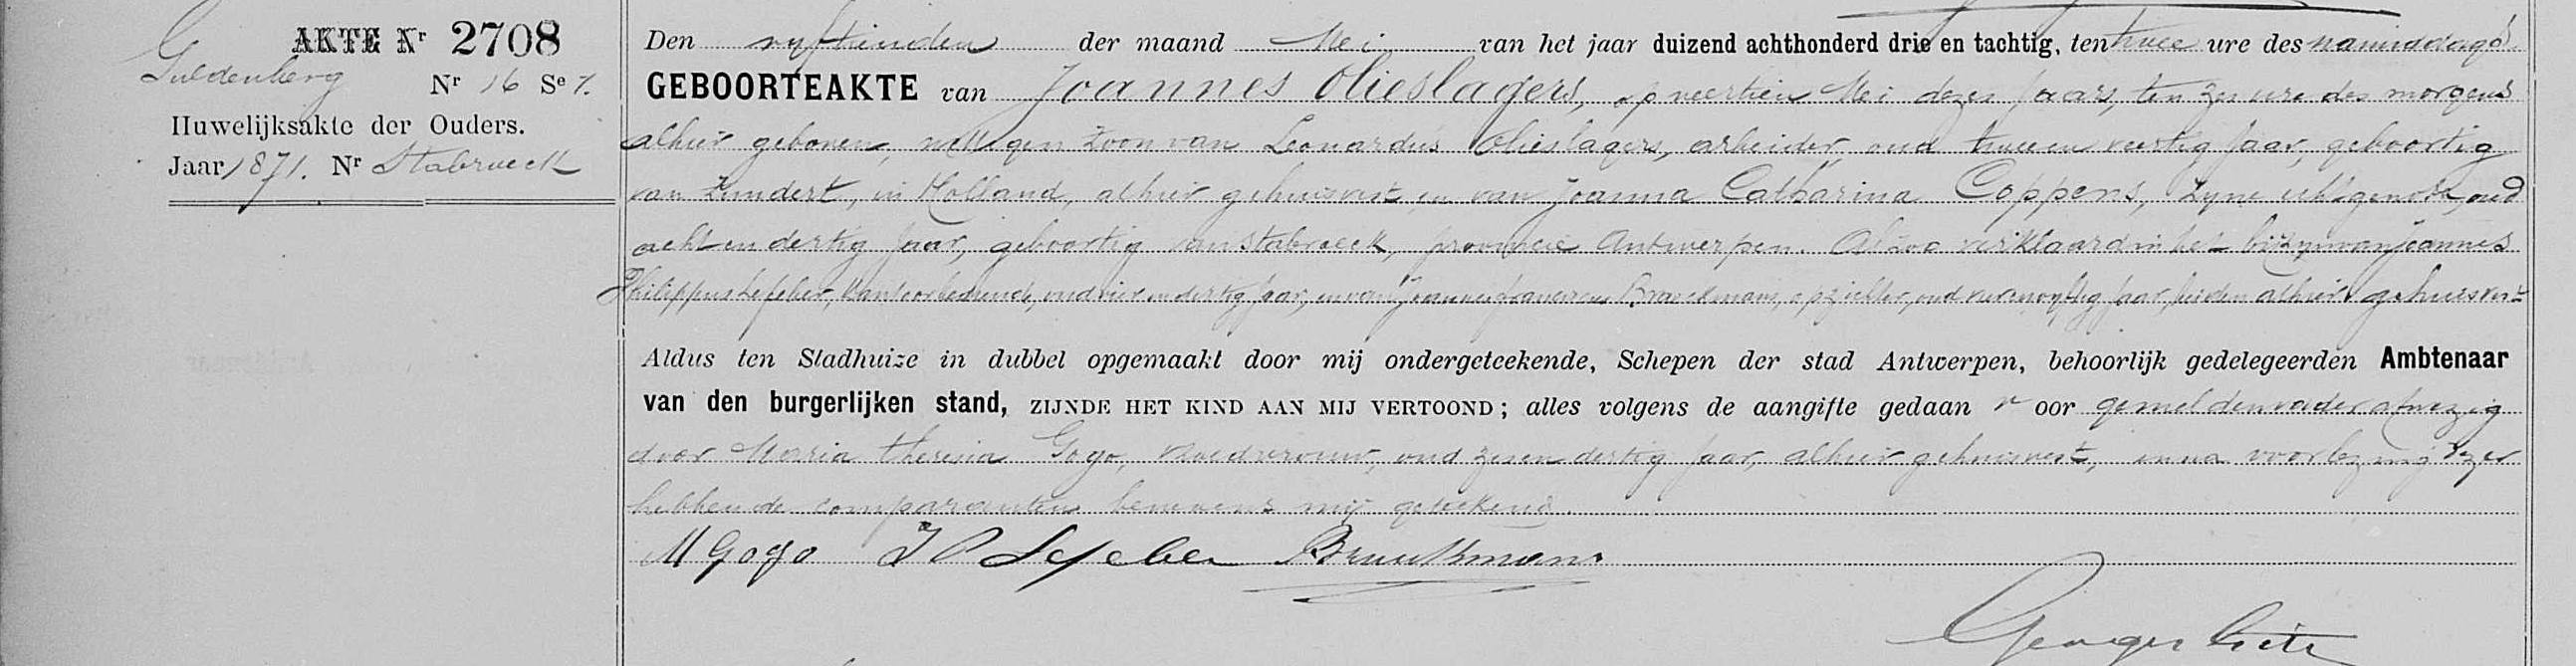 AKTE Nr 2708
Guldenberg
Nr 16 Se 7.
Huwelijksakte der Ouders.
Jaar 1871. Nr Stabroeck
Den vyftienden der maand Mei van het jaar duizend achthonderd drie en tachtig, ten twee ure des namiddags
GEBOORTEAKTE van Joannes Olieslagers, op veertien Mei dezes jaars, ten zes ure des morgens
alhier geboren, wettigen zoon van Leonardus Olieslagers, arbeider, oud twee en veertig jaar, geboortig
van Zundert, in Holland, alhier gehuisvest en van Joanna Catharina Coppens, zyne echtgenote, oud
acht en dertig jaar, geboortig van Stabroeck, provincie Antwerpen. Alzoo verklaard in het byzyn van Joannes
Philippus Lefeber, kantoorbediende, oud vier en dertig jaar, en van Joannes Franciscus Braeckmans, opzichter, oud jaar, beiden alhier gehuisvest
Aldus ten Stadhuize in dubbel opgemaakt door mij ondergeteekende, Schepen der stad Antwerpen, behoorlijk gedelegeerden Ambtenaar
van den burgerlijken stand, ZIJNDE HET KIND AAN MIJ VERTOOND; alles volgens de aangifte gedaan voor gemelden vader afwezig
door Maria Theresia Gogo, vroedvrouw, oud zes en dertig jaar, alhier gehuisvest, en na voorlezing dezer
hebben de comparanten benevens mij geteekend.
M Gogo J P Lefeber Braeckmans